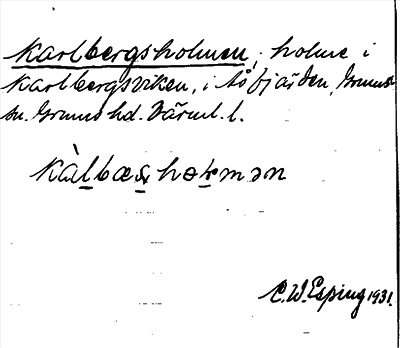 Karlbergsholmen, holme i
Karlbergsviken, i Åsfjärden, Grums
sn. Grums hd. Värml. l.
kàlbæs̨hɷɫmən
C. W. Esping 1931.